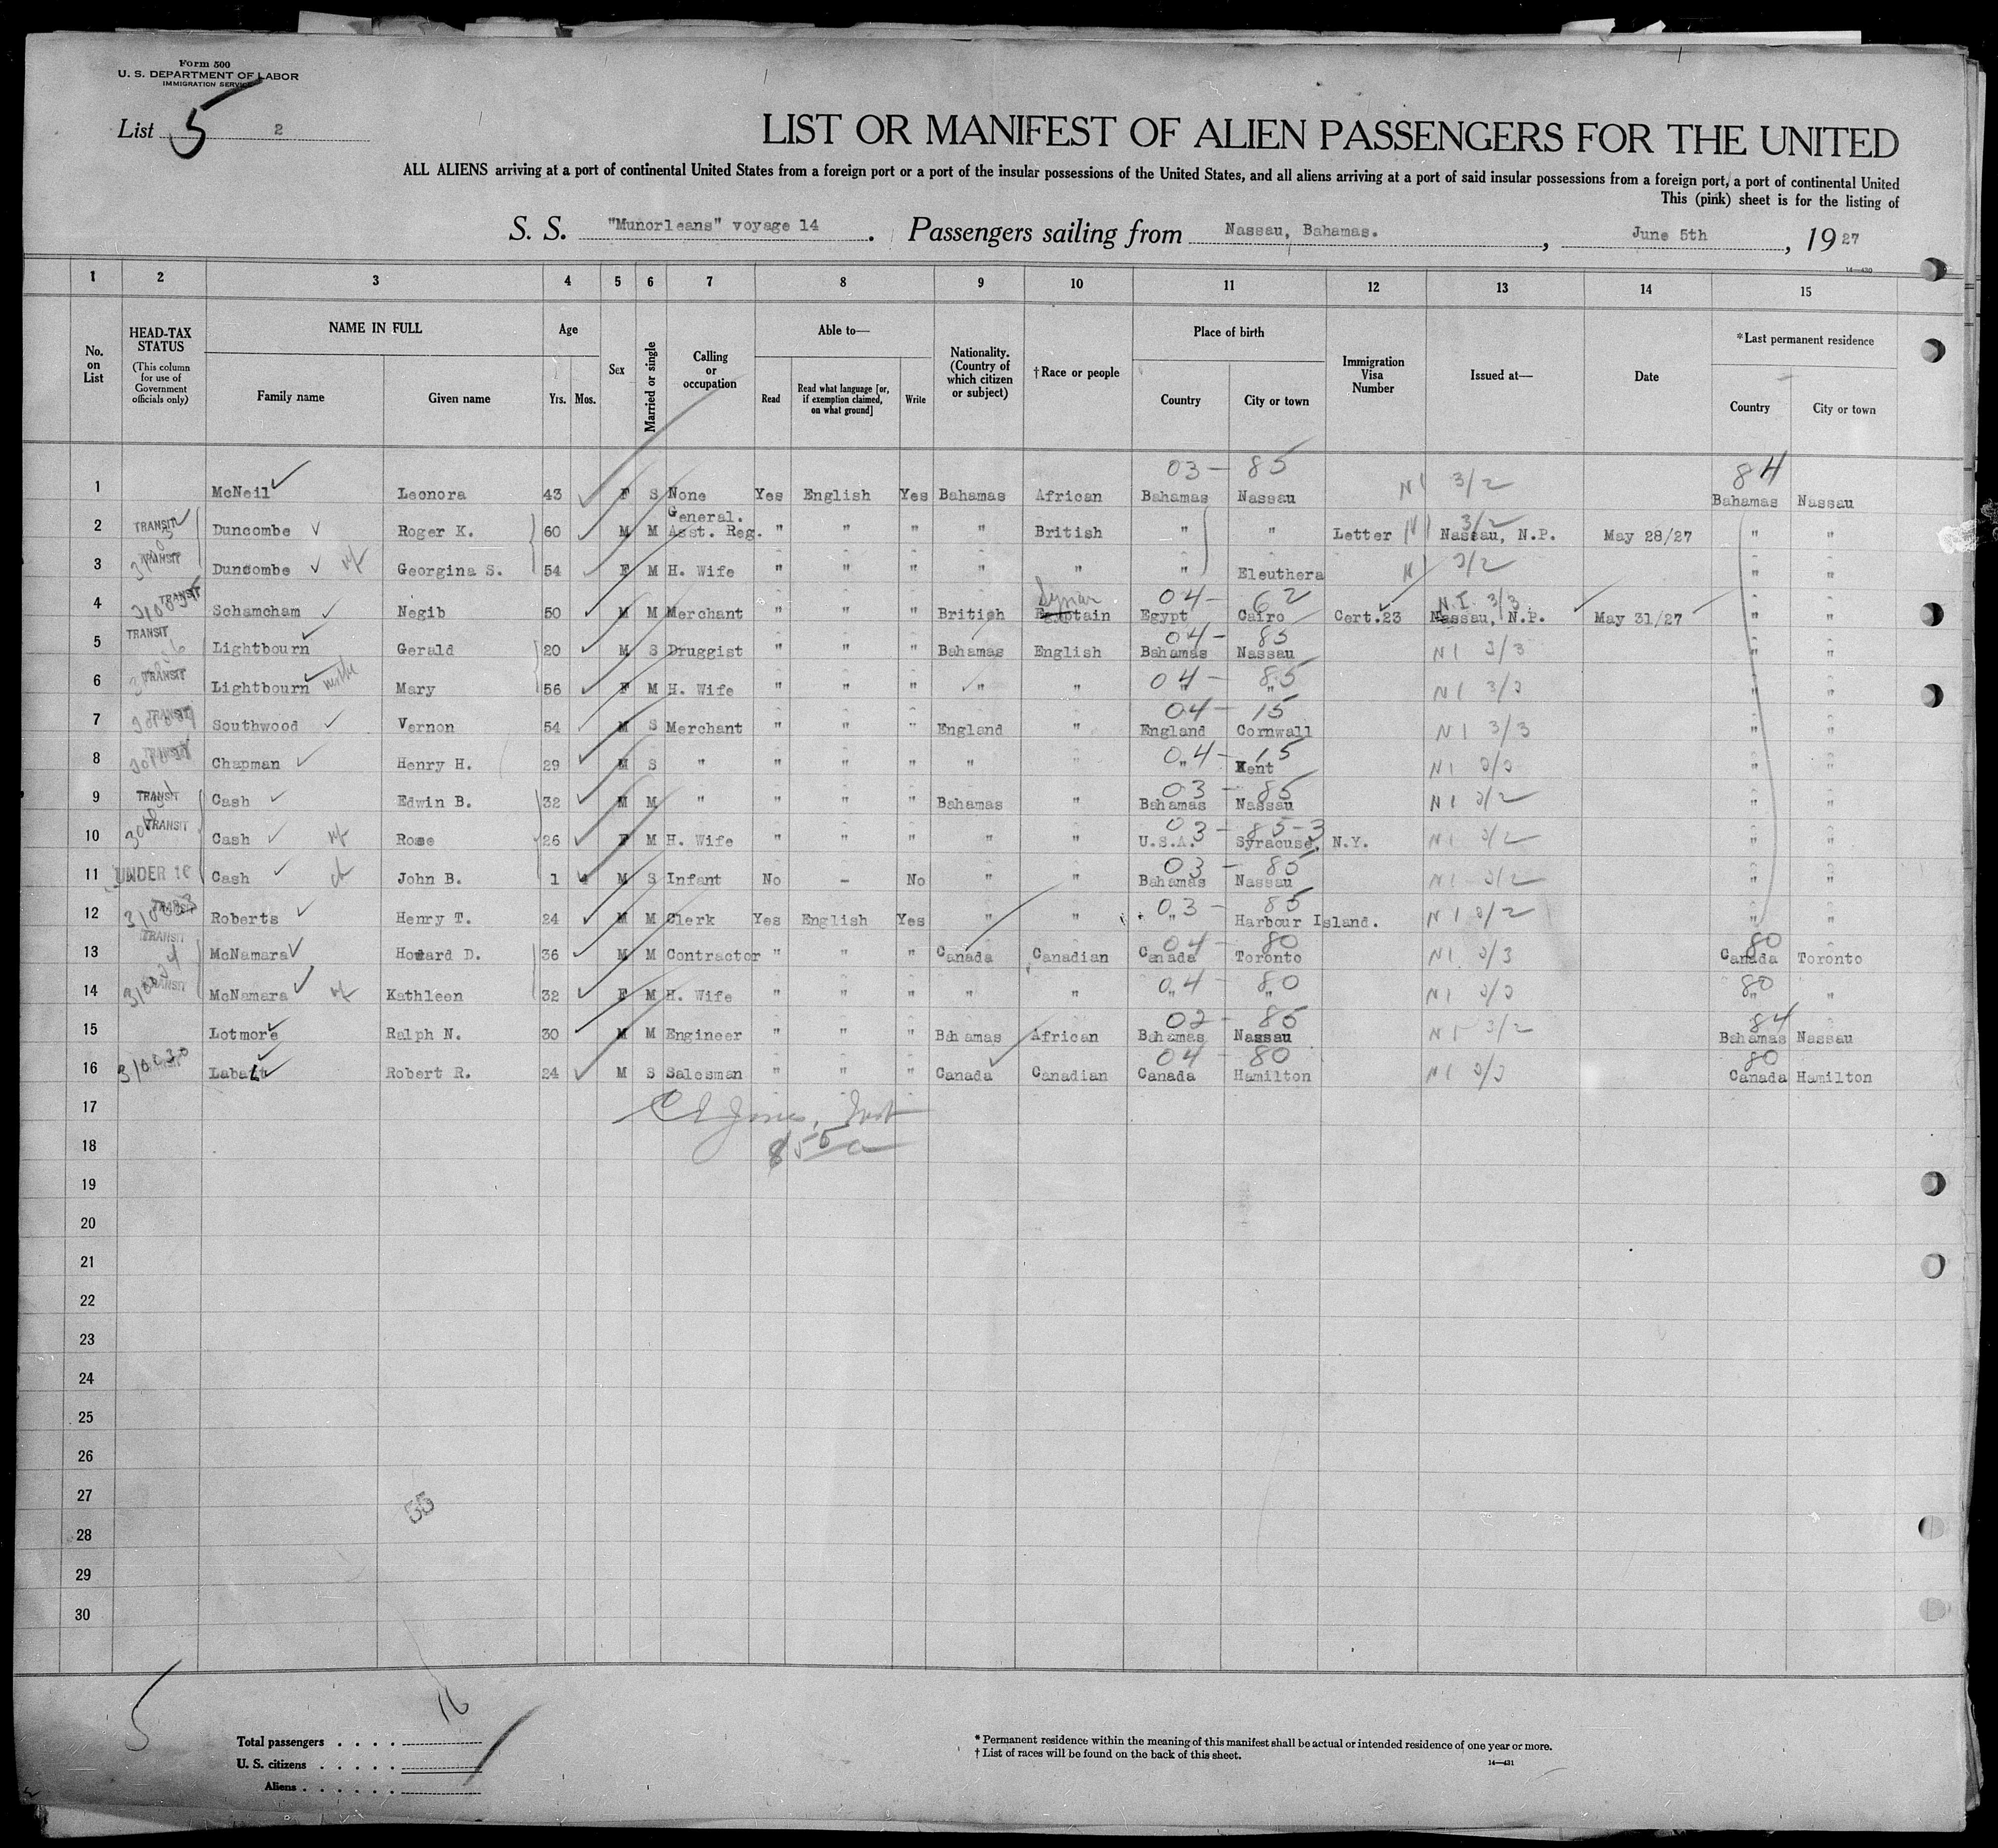 Form 500
U. S. DEPARTMENT OF LABOR
IMMIGRATION SERVICE
List 5 2
LIST OR MANIFEST OF ALIEN PASSENGERS FOR THE UNITED
ALL ALIENS arriving at a port of continental United States from a foreign port or a port of the insular possessions of the United States, and all aliens arriving at a port of said insular possessions from a foreign port, a port of continental United
This (pink) sheet is for the listing of
S. S. "Munorleans" voyage 14 . Passengers sailing from Nassau, Bahamas. , June 5th , 19 27
14—430
1 2 3 4 5 6 7 8 9 10 11 12 13 14 15
No. on List HEAD-TAX STATUS (This column for use of Government officials only) NAME IN FULL Family name Given name Age Yrs. Mos. Sex Married or single Calling or occupation Able to— Read Read what language [or, if exemption claimed, on what ground] Write Nationality. (Country of which citizen or subject) †Race or people Place of birth Country City or town Immigration Visa Number Issued at— Date *Last permanent residence Country City or town
03 — 85 84
1 McNeil Leonora 43 F S None Yes English Yes Bahamas African Bahamas Nassau N I 3/2 Bahamas Nassau
General.
2 TRANSIT Duncombe Roger K. 60 M M Asst. Reg. " " " " British " " Letter N I 3/2 Nassau, N.P. May 28/27 " "
3 TRANSIT Duncombe wf Georgina S. 54 F M H. Wife " " " " " " Eleuthera N I 3/2 " "
Syrian 04 — 62 N.I. 3/3
4 TRANSIT Schamcham Negib 50 M M Merchant " " " British Egyptain Egypt Cairo Cert.23 Nassau, N.P. May 31/27 " "
04 — 85
5 TRANSIT Lightbourn Gerald 20 M S Druggist " " " Bahamas English Bahamas Nassau N I 3/3 " "
04 — 85
6 TRANSIT Lightbourn mother Mary 56 F M H. Wife " " " " " " " N I 3/3 " "
04 — 15
7 TRANSIT Southwood Vernon 54 M S Merchant " " " England " England Cornwall N I 3/3 " "
04 — 15
8 TRANSIT Chapman Henry H. 29 M S " " " " " " " Kent N I 3/3 " "
03 — 85
9 TRANSIT Cash Edwin B. 32 M M " " " " Bahamas " Bahamas Nassau N I 3/2 " "
03 — 85-3
10 TRANSIT Cash wf Rose 26 F M H. Wife " " " " " U.S.A. Syracuse, N.Y. N I 3/2 " "
03 — 85
11 UNDER 16 Cash ch John B. 1 4 M S Infant No - No " " Bahamas Nassau N I 3/2 " "
03 — 85
12 TRANSIT Roberts Henry T. 24 M M Clerk Yes English Yes " " " Harbour Island. N I 3/2 " "
04 — 80 80
13 TRANSIT McNamara Howard D. 36 M M Contractor " " " Canada Canadian Canada Toronto N I 3/3 Canada Toronto
04 — 80 80
14 TRANSIT McNamara wf Kathleen 32 F M H. Wife " " " " " " " N I 3/3 " "
02 — 85 84
15 Lotmore Ralph N. 30 M M Engineer " " " Bahamas African Bahamas Nassau N I 3/2 Bahamas Nassau
04 — 80 80
16 Labatt Robert R. 24 M S Salesman " " " Canada Canadian Canada Hamilton N I 3/3 Canada Hamilton
17
18
19
20
21
22
23
24
25
26
27
28
29
30
35
5 16
Total passengers
U. S. citizens
Aliens
* Permanent residence within the meaning of this manifest shall be actual or intended residence of one year or more.
† List of races will be found on the back of this sheet.
14—431